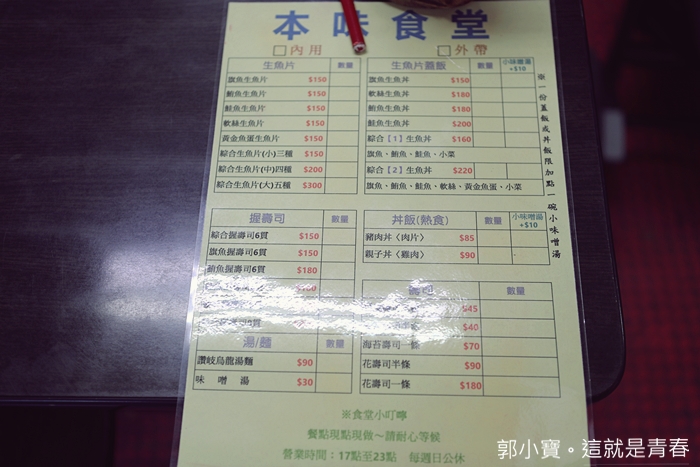 本味食堂
□內用 □外帶
生魚片 數量
旗魚生魚片 $150
鮪魚生魚片 $150
鮭魚生魚片 $150
軟絲生魚片 $150
黃金魚蛋生魚片 $150
綜合生魚片(小)三種 $150
綜合生魚片(中)四種 $200
綜合生魚片(大)五種 $300
生魚片蓋飯 數量 小味噌湯+$10
旗魚生魚丼 $150
軟絲生魚丼 $180
鮪魚生魚丼 $180
鮭魚生魚丼 $200
綜合【1】生魚丼 $160
旗魚、鮪魚、鮭魚、小菜
綜合【2】生魚丼 $220
旗魚、鮪魚、鮭魚、軟絲、黃金魚蛋、小菜
※一份蓋飯或丼飯限加點一碗小味噌湯
握壽司 數量
綜合握壽司6貫 $150
旗魚握壽司6貫 $150
鮪魚握壽司6貫 $180
丼飯(熱食) 數量 小味噌湯+$10
豬肉丼〈肉片〉 $85
親子丼〈雞肉〉 $90
湯/麵 數量
讚岐烏龍湯麵 $90
味噌湯 $30
數量
$45
$40
海苔壽司一條 $70
花壽司半條 $90
花壽司一條 $180
※食堂小叮嚀
餐點現點現做～請耐心等候
營業時間：17點至23點 每週日公休
郭小寶。這就是青春